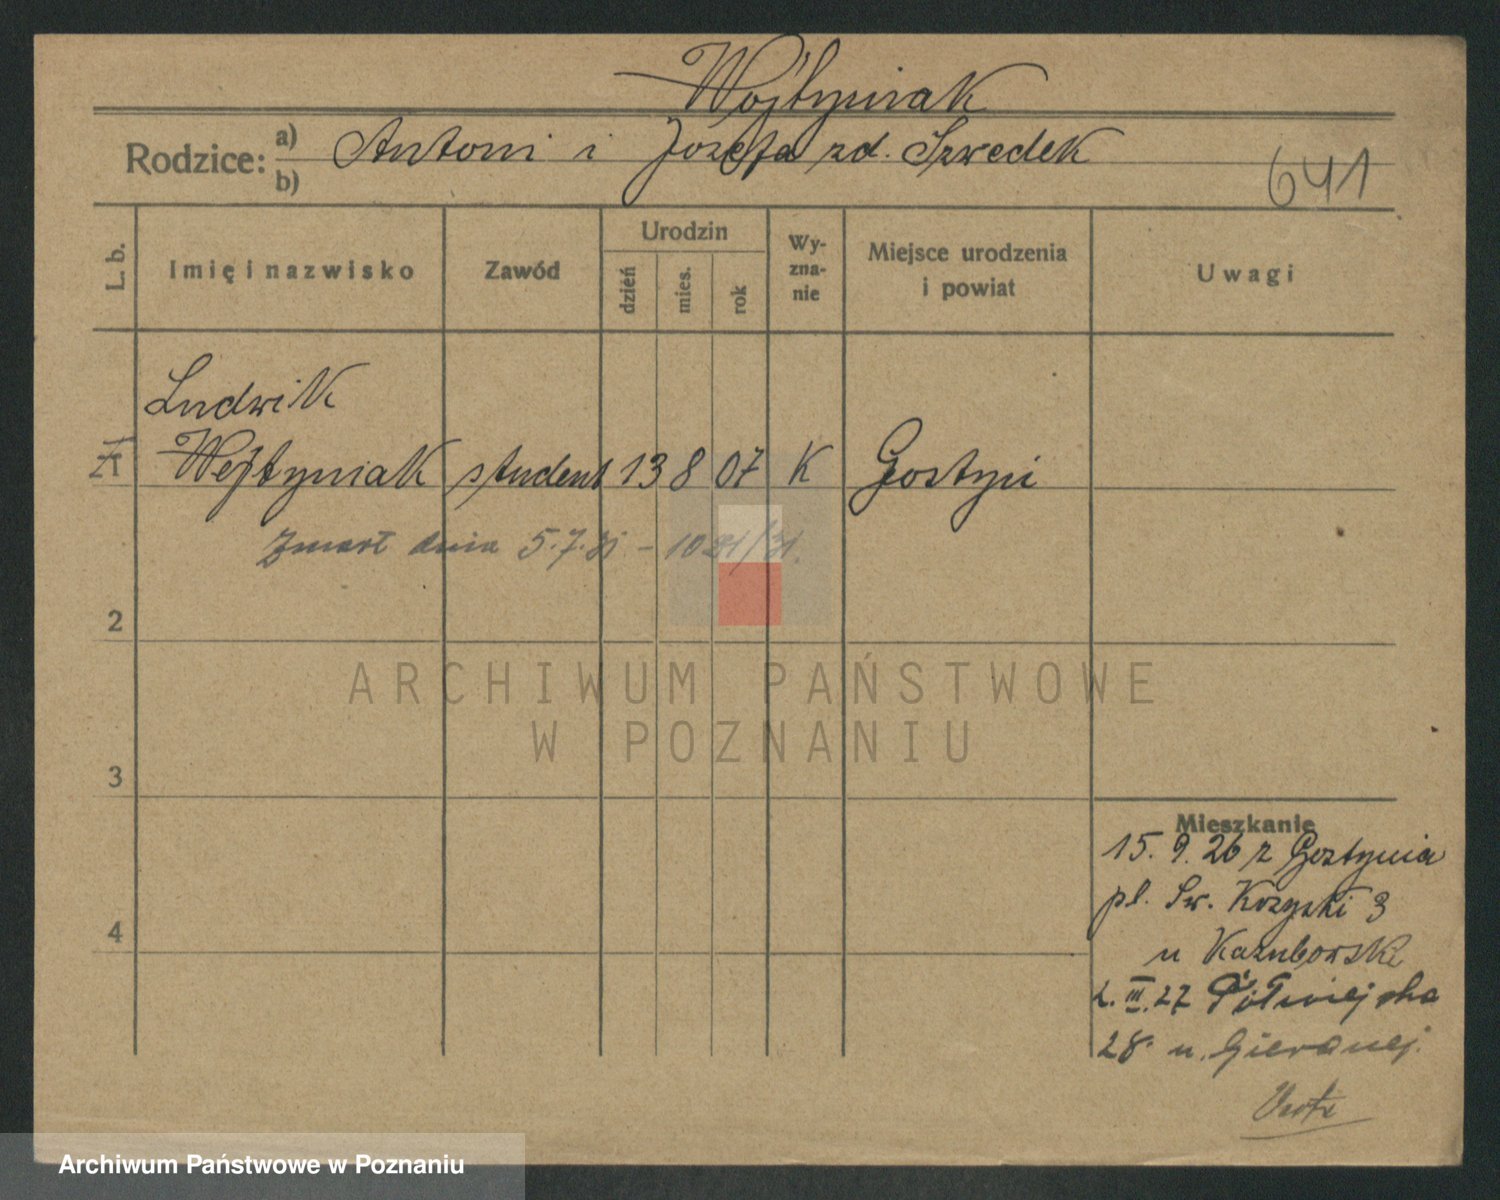 Wojtyniak
Rodzice: a) Antoni i Józefa zd. Szwedek
b)
641
L. b.
Imię i nazwisko
Zawód
Urodzin
dzień
mies.
rok
Wy-
zna-
nie
Miejsce urodzenia
i powiat
Uwagi
Ludwik
1 Wojtyniak student 13 8 07 K Gostyń
Zmarł dnia 5.7.31 - 1021/31.
2
3
4
Mieszkanie
15. 9. 26 z Gostynia
pl. Św. Krzyski 3
u Kaznborski
2. III. 27 Półwiejska
28 u.
ARCHIWUM PAŃSTWOWE
W POZNANIU
Archiwum Państwowe w Poznaniu